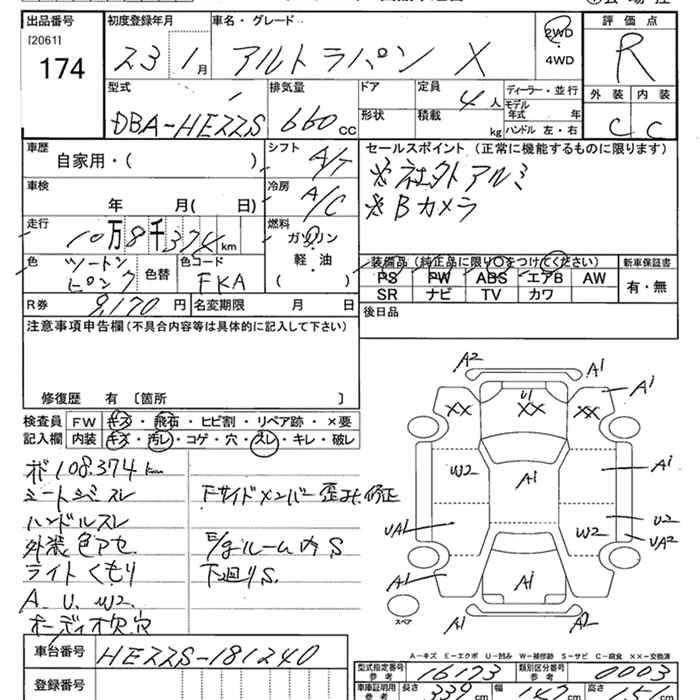 出品番号 初度登録年月 車名・グレード 2WD 評価点
[2061] 23 1月 アルトラパン X 4WD R
174
型式 排気量 ドア 定員 ディーラー・並行 外装 内装
DBA-HE22S 660cc 4人 モデル年式 年 C C
形状 積載 kg ハンドル 左・右
車歴 シフト セールスポイント(正常に機能するものに限ります)
自家用・( ) A/T ※社外アルミ
車検 冷房 ※Bカメラ
年 月( 日) A/C
走行 燃料
10万8千374km ガソリン
軽・油
( )
色 色コード 装備品(純正品に限り○をつけてください) 新車保証書
ツートン 色替 FKA PS PW ABS エアB AW 有・無
ピンク SR ナビ TV カワ
R券 9,170円 名変期限 月 日 後日品
注意事項申告欄(不具合内容等は具体的に記入して下さい)
修復歴 有 〔箇所 〕
検査員 FW キズ・飛石・ヒビ割・リペア跡・×要
記入欄 内装 キズ・汚レ・コゲ・穴・スレ・キレ・破レ
108.374km
シートシミ スレ Fサイドメンバー歪み、修正
ハンドルスレ
外装色アセ E/gルーム内S
ライトくもり 下廻りS.
A. U. W2.
オーディオ欠、穴
A2 A1
U1 A1
XX XX XX
W2 A1 A1
UA1 W2 U2
UA2
A1 A1
スペア A1 A2
A-キズ E-エクボ U-凹み W-補修跡 S-サビ C-腐食 XX-交換済
車台番号 HE22S-181240
型式指定番号 参考 16173 類別区分番号 参考 0003
登録番号
車庫証明用 参考 長さ 339cm 幅 147cm 高さ 151cm